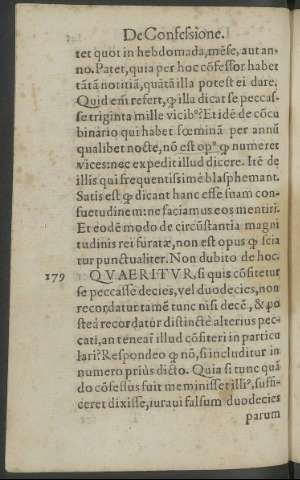 De Confessione.
tet quot in hebdomada,mẽse, aut an-
no. Patet, quia per hoc cõfessor habet
tãtã notitiã, quãtã illa potest ei dare.
Quid em̃ refert, ꝙ illa dicat se peccas-
se triginta mille vicib⁹? Et idẽ de cõcu
binàrio qui habet fœminã per annũ
qualibet nocte, nõ est op⁹ ꝙ numeret
vices: nec expedit illud dicere. Itẽ de
illis qui frequentissimè blasphemant.
Satis est ꝙ dicant hanc esse suam con-
suetudinem: ne faciamus eos mentiri.
Et eodẽ modo de circũstantia magni
tudinis rei furatæ, non est opus ꝙ scia
tur punctualiter. Non dubito de hoc.
179 QVAERITVR, si quis cõfitetur
se peccasse decies, vel duodecies, non
recordatur tamẽ tunc nisi decẽ, & po
steà recordatur distinctè alterius pec-
cati, an teneat̃ illud cõfiteri in particu
lari? Respondeo ꝙ nõ, si includitur in
numero priùs dicto. Quia si tunc quã
do cõfessus fuit meminisset illi⁹, suffi-
ceret dixisse, iuraui falsum duodecies
parum